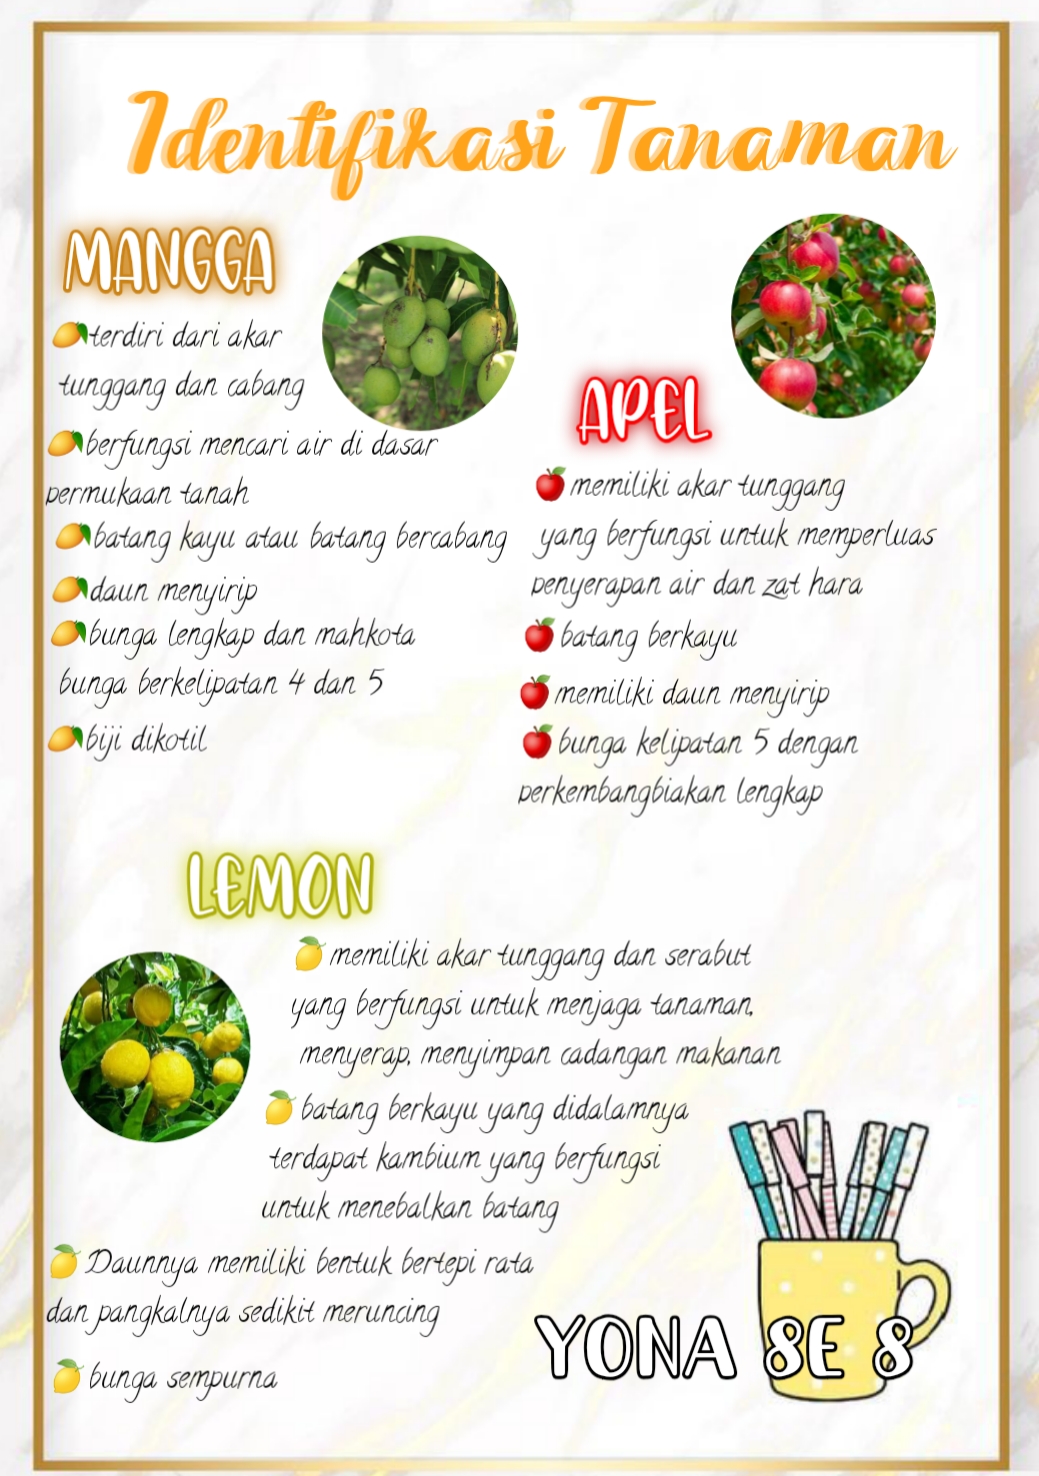 Identifikasi Tanaman
MANGGA
terdiri dari akar
tunggang dan cabang
berfungsi mencari air di dasar
permukaan tanah
batang kayu atau batang bercabang
daun menyirip
bunga lengkap dan mahkota
bunga berkelipatan 4 dan 5
biji dikotil
APEL
memiliki akar tunggang
yang berfungsi untuk memperluas
penyerapan air dan zat hara
batang berkayu
memiliki daun menyirip
bunga kelipatan 5 dengan
perkembangbiakan lengkap
LEMON
memiliki akar tunggang dan serabut
yang berfungsi untuk menjaga tanaman,
menyerap, menyimpan cadangan makanan
batang berkayu yang didalamnya
terdapat kambium yang berfungsi
untuk menebalkan batang
Daunnya memiliki bentuk bertepi rata
dan pangkalnya sedikit meruncing
bunga sempurna
YONA 8E 8